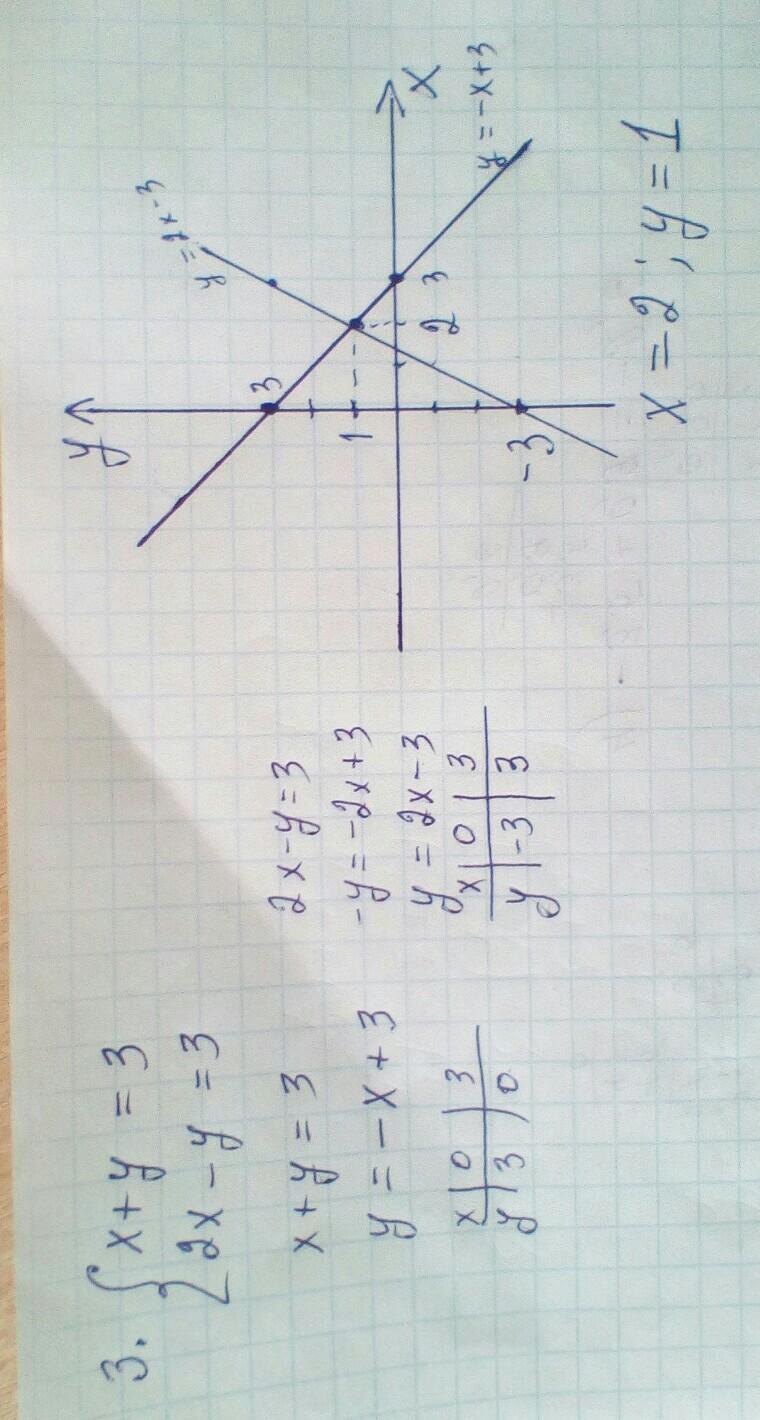 3. { x + y = 3
2x - y = 3
x + y = 3
y = -x + 3
x | 0 | 3
y | 3 | 0
2x - y = 3
-y = -2x + 3
y = 2x - 3
x | 0 | 3
y | -3 | 3
y
3
1
-3
2
3
x
y = 2x - 3
y = -x + 3
x = 2 ; y = 1